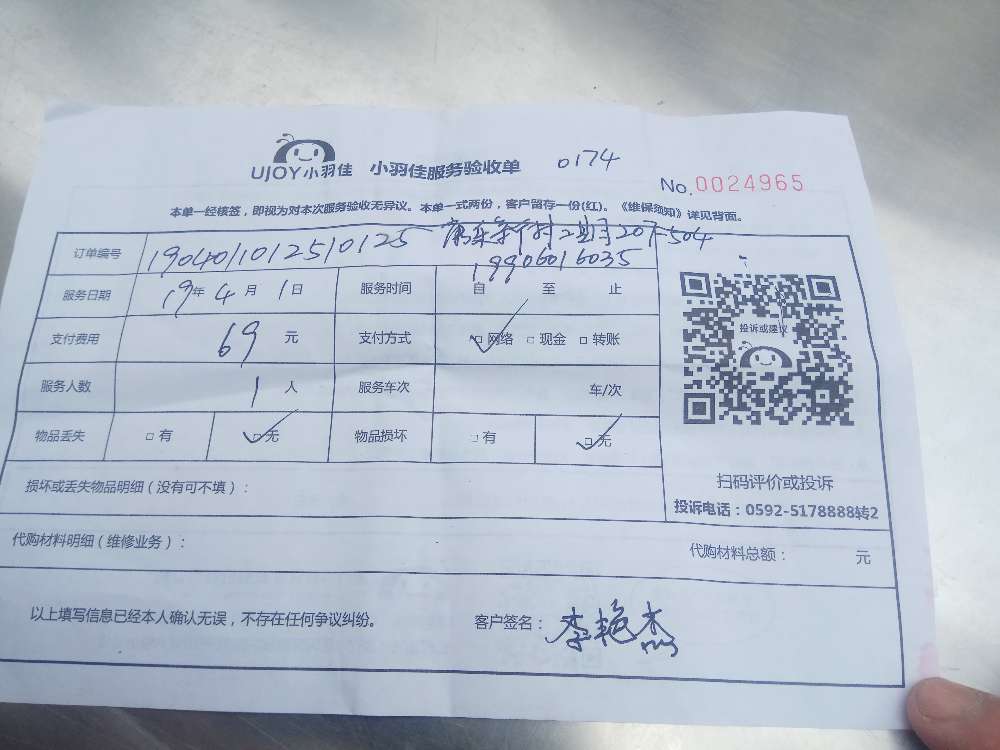 UJOY小羽佳 小羽佳服务验收单 0174
No.0024965
本单一经核签，即视为对本次服务验收无异议。本单一式两份，客户留存一份(红)。《维保须知》详见背面。
订单编号 190401012510125 新村二期 207-504
19906016035
服务日期 19年 4月 1日 服务时间 自 至 止
支付费用 69 元 支付方式 □网络 □现金 □转账
服务人数 1 人 服务车次 车/次
物品丢失 □有 □无 物品损坏 □有 □无
投诉或建议
扫码评价或投诉
投诉电话：0592-5178888转2
损坏或丢失物品明细（没有可不填）：
代购材料明细（维修业务）： 代购材料总额： 元
以上填写信息已经本人确认无误，不存在任何争议纠纷。 客户签名：李艳杰